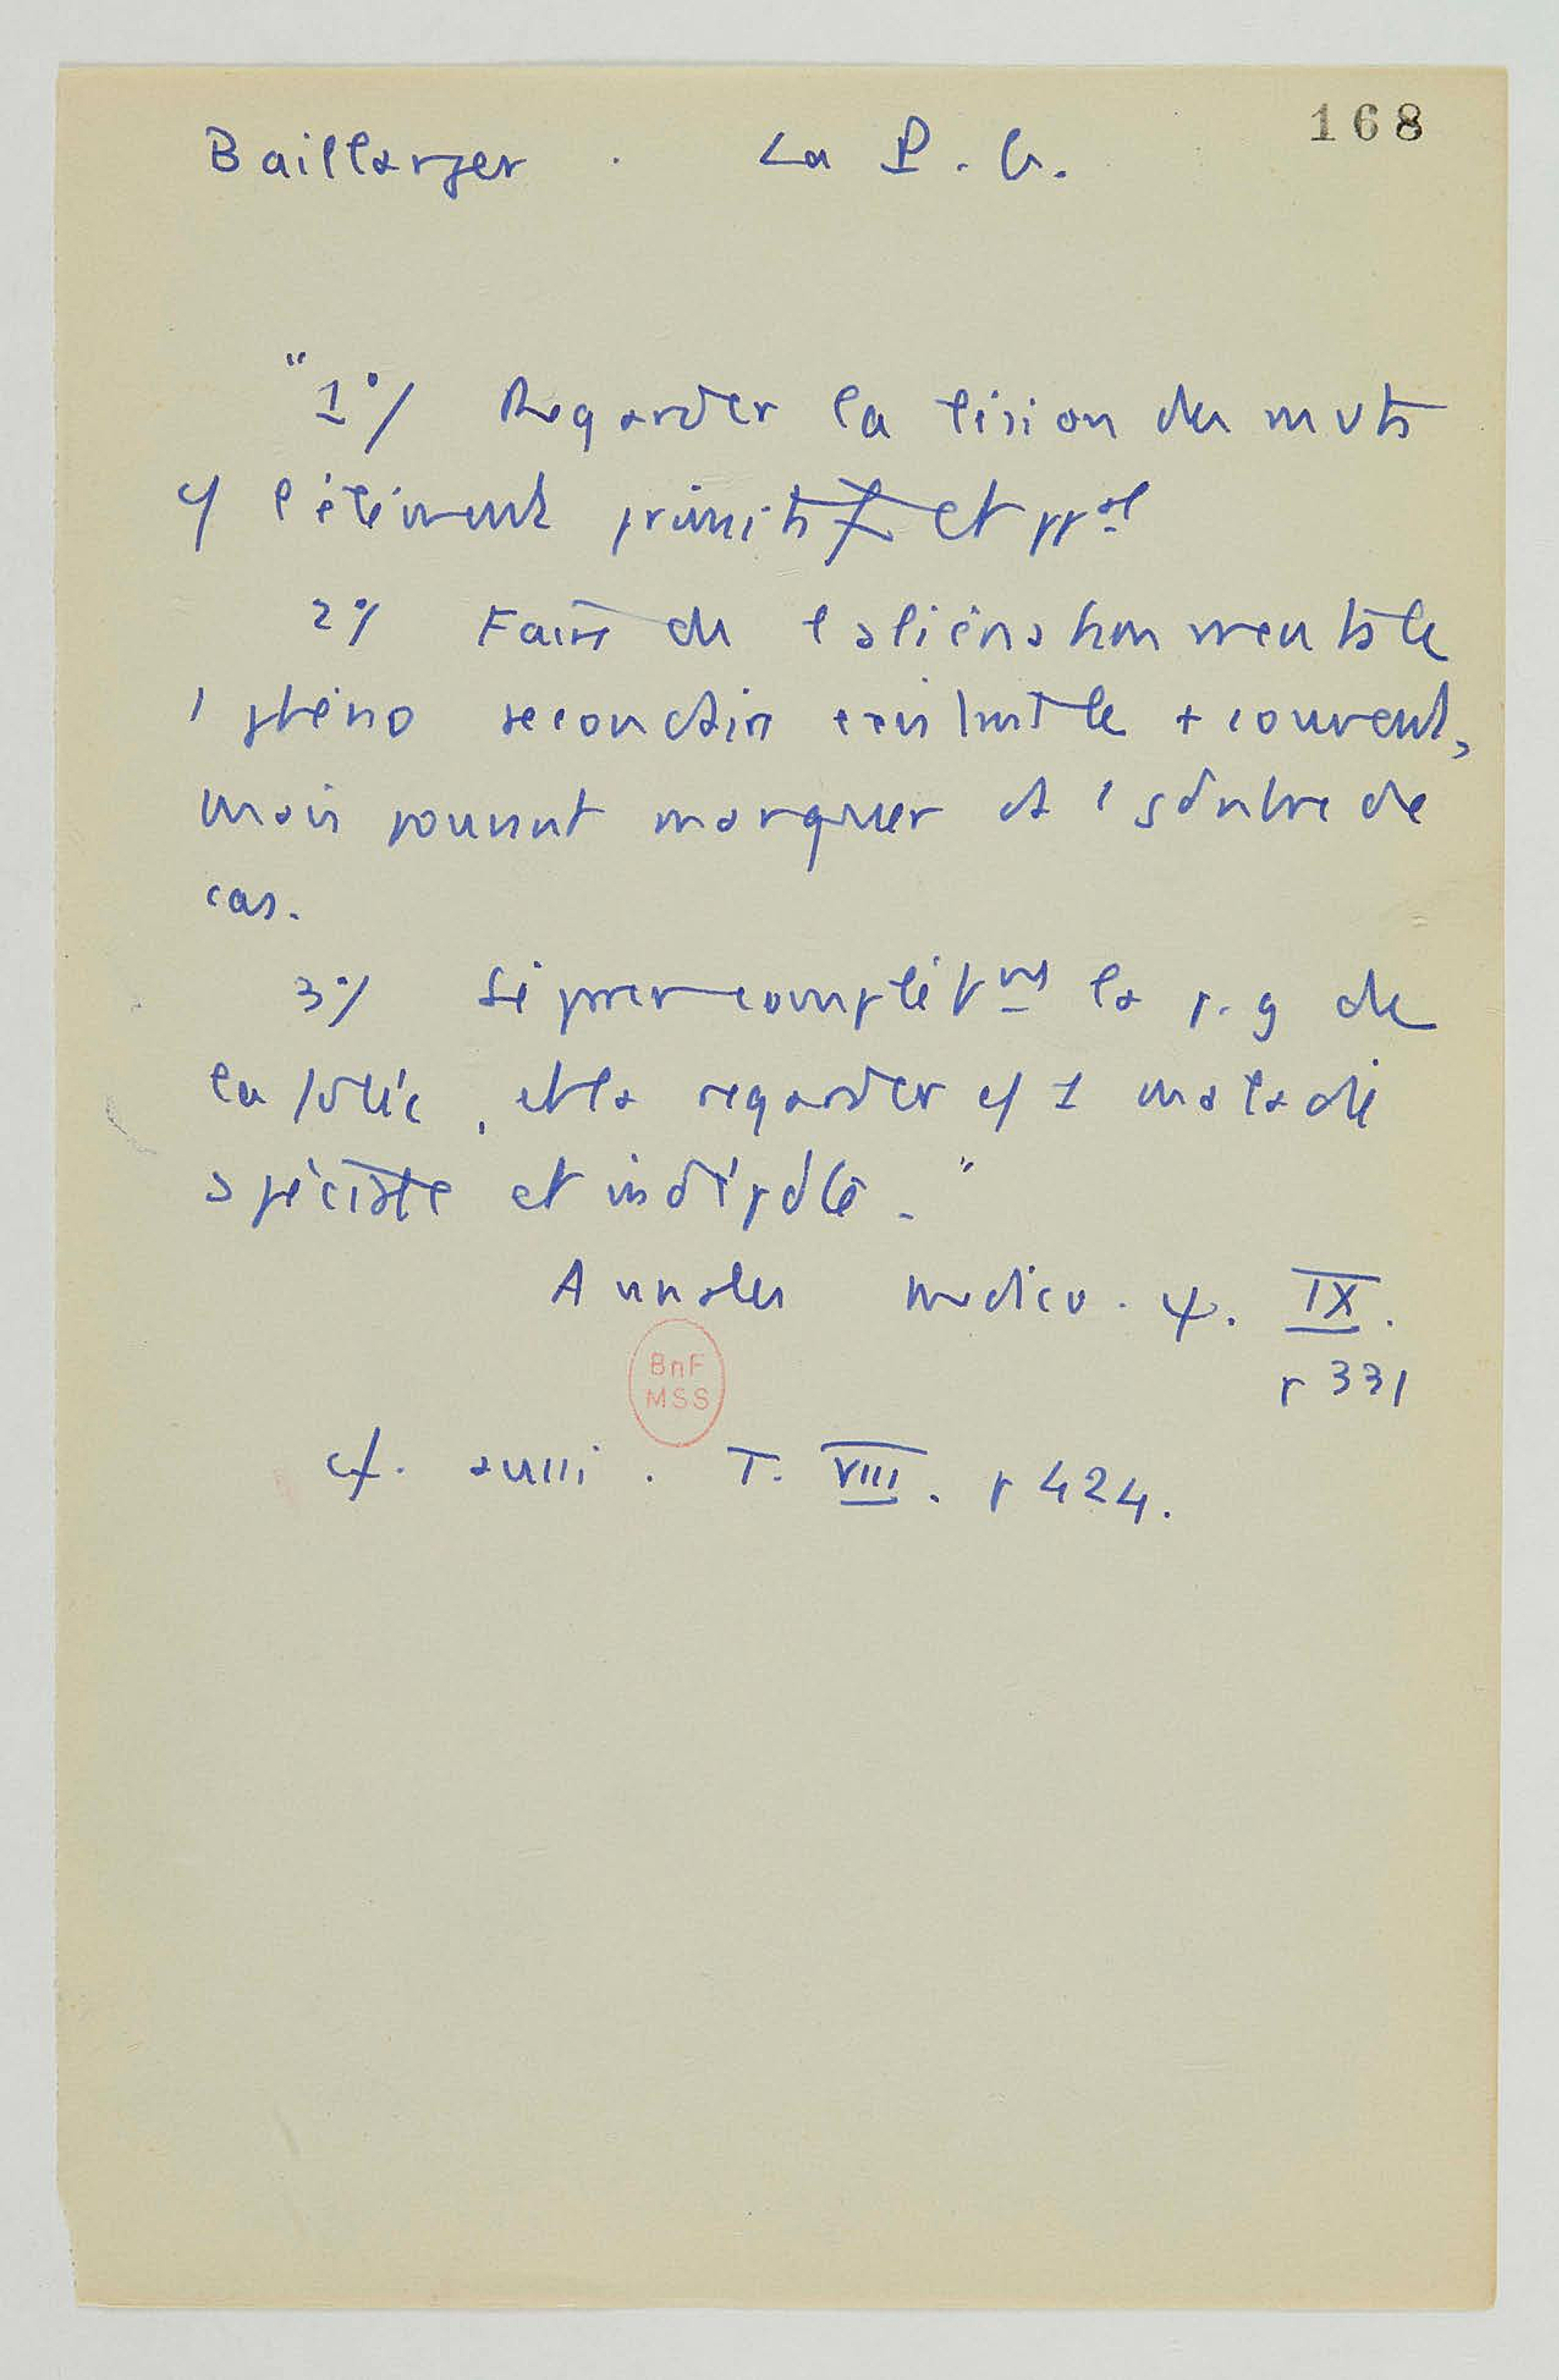 168
Baillarger . La P. G.
"1°/ Regarder la lésion des mvts
cf l'élément primitif et ppal
2°/ Faire de l'aliénation mentale
1 phéno secondaire existant le + souvent,
mais pouvant manquer ds 1 nombre de
cas.
3°/ Séparer complètmt la p. g de
la folie, et la regarder cf 1 maladie
spéciale et indépdte. "
Annales medico. ψ. IX.
p 331
BnF
MSS
cf. aussi . T. VIII. p 424.